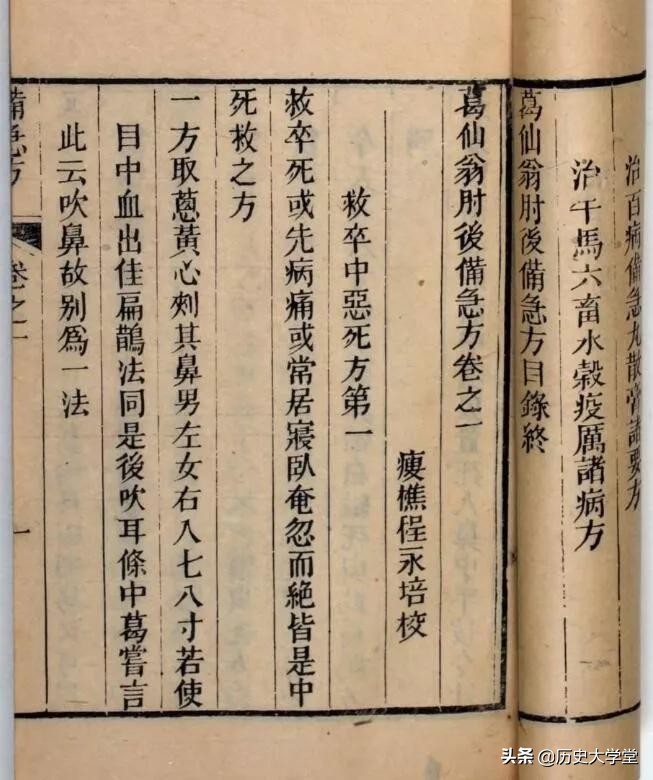 治百病備急丸散膏諸要方
治牛馬六畜水穀疫厲諸病方
葛仙翁肘後備急方目錄終
葛仙翁肘後備急方卷之一
瘦樵程永培校
救卒中惡死方第一
救卒死或先病痛或常居寢臥奄忽而絶皆是中
死救之方
一方取蔥黃心刾其鼻男左女右入七八寸若使
目中血出佳扁鵲法同是後吹耳條中葛嘗言
此云吹鼻故别爲一法
備急方 卷之一 一
头条 @历史大学堂